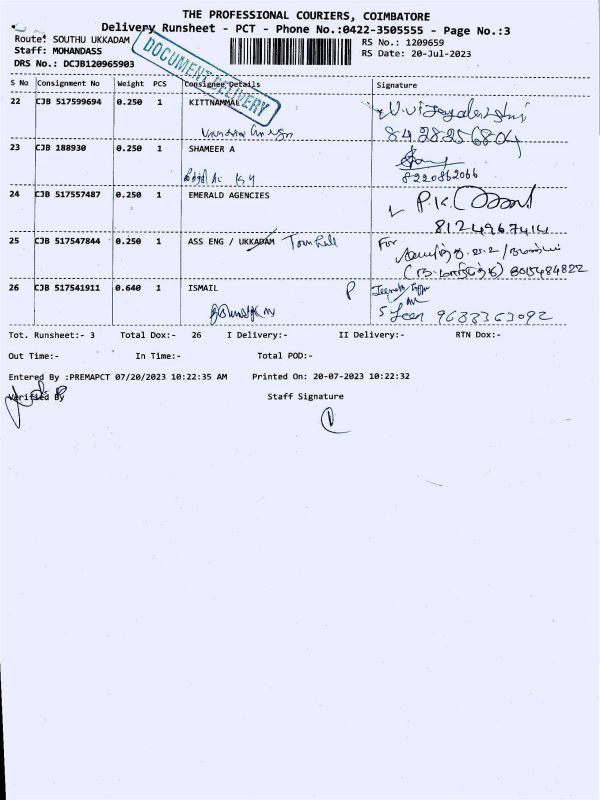 THE PROFESSIONAL COURIERS, COIMBATORE
Delivery Runsheet - PCT - Phone No.:0422-3505555 - Page No.:3
Route: SOUTHU UKKADAM
RS No.: 1209659
Staff: MOHANDASS
RS Date: 20-Jul-2023
DRS No.: DCJB120965903
DOCUMENT DELIVERY
S No Consignment No Weight PCS Consignee Details Signature
22 CJB 517599694 0.250 1 KITTNAMMAL
8428256804
23 CJB 188930 0.250 1 SHAMEER A
8220862066
24 CJB 517557487 0.250 1 EMERALD AGENCIES
P.K.
8124967414
25 CJB 517547844 0.250 1 ASS ENG / UKKADAM For
8015484822
26 CJB 517541911 0.640 1 ISMAIL P
9633363092
Tot. Runsheet:- 3 Total Dox:- 26 I Delivery:- II Delivery:- RTN Dox:-
Out Time:- In Time:- Total POD:-
Entered By :PREMAPCT 07/20/2023 10:22:35 AM Printed On: 20-07-2023 10:22:32
Verified By Staff Signature